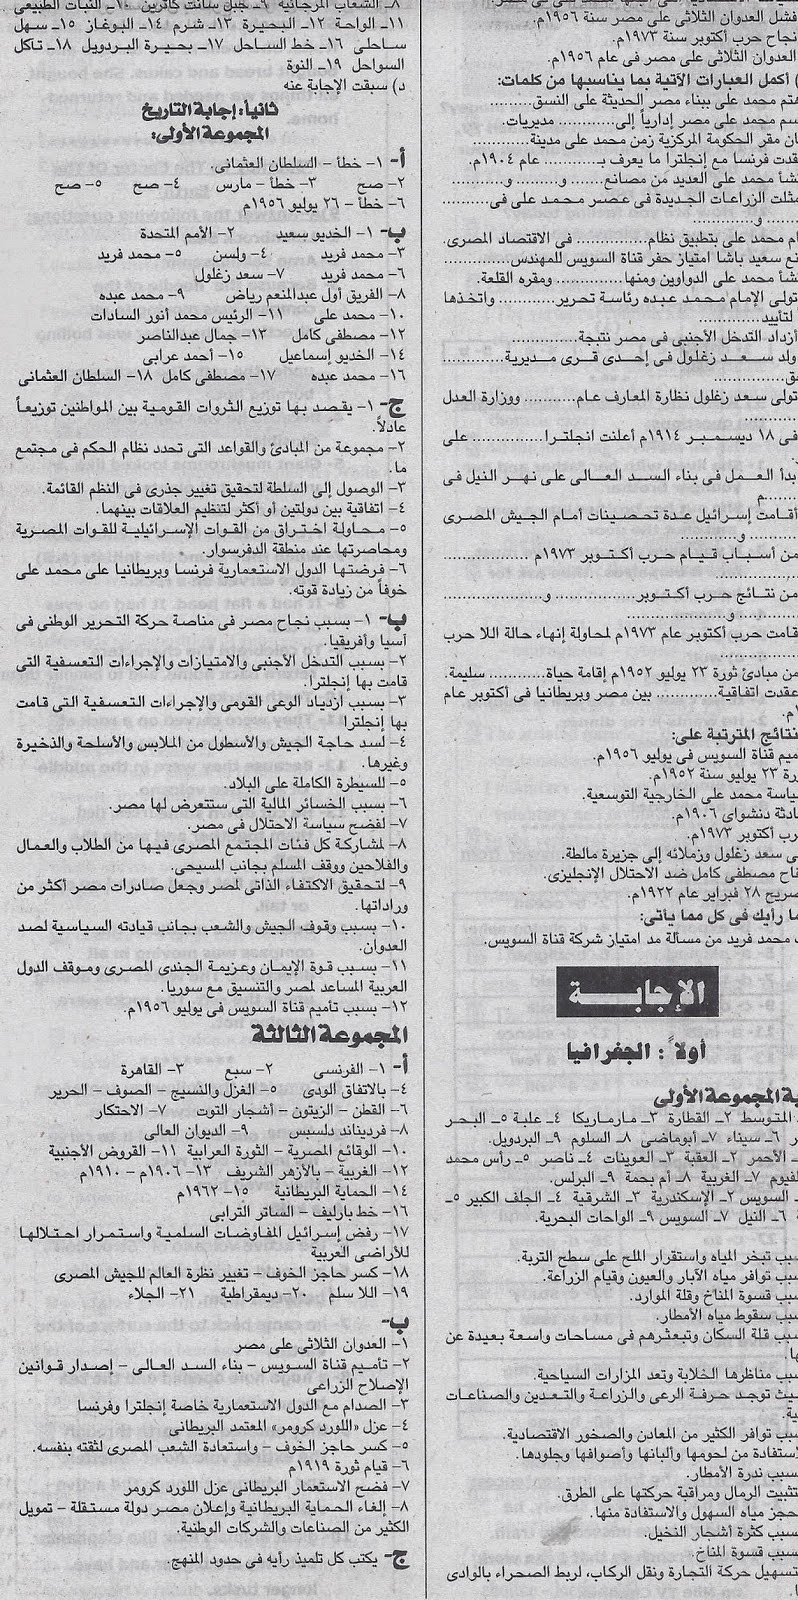 فشل العدوان الثلاثى على مصر سنة ١٩٥٦م.
نجاح حرب أكتوبر سنة ١٩٧٣م.
العدوان الثلاثى على مصر فى عام ١٩٥٦م.
) أكمل العبارات الآتية بما يناسبها من كلمات:
هتم محمد على ببناء مصر الحديثة على النسق..........
سم محمد على مصر إدارياً إلى........... مديريات.
ان مقر الحكومة المركزية زمن محمد على مدينة............
قدت فرنسا مع إنجلترا ما يعرف بـ........... عام ١٩٠٤م.
نشأ محمد على العديد من مصانع....... و........... و...........
مثلت الزراعات الجديدة فى عصر محمد على فى...........
........... و...........
ام محمد على بتطبيق نظام........... فى الاقتصاد المصرى.
نع سعيد باشا امتياز حفر قناة السويس للمهندس...........
نشأ محمد على الدواوين ومنها........... ومقره القلعة.
تولى الإمام محمد عبده رئاسة تحرير........... واتخذها
لتأييد...........
أزداد التدخل الأجنبى فى مصر نتيجة...........
ولد سعد زغلول فى إحدى قرى مديرية...........
ق...........
تولى سعد زغلول نظارة المعارف عام........... ووزارة العدل
...........
فى ١٨ ديسمبر ١٩١٤م أعلنت انجلترا........... على
بدأ العمل فى بناء السد العالى على نهر النيل فى
...........م
أقامت إسرائيل عدة تحصينات أمام الجيش المصرى
........... و...........
من أسباب قيام حرب أكتوبر ١٩٧٣م ...........
من نتائج حرب أكتوبر........... و...........
........... و...........
قامت حرب أكتوبر عام ١٩٧٣م لمحاولة إنهاء حالة اللا حرب
من مبادئ ثورة ٢٣ يوليو ١٩٥٢م إقامة حياة........... سليمة.
عقدت اتفاقية........... بين مصر وبريطانيا فى أكتوبر عام
م.
نتائج المترتبة على:
ميم قناة السويس فى يوليو ١٩٥٦م.
رة ٢٣ يوليو سنة ١٩٥٢م.
ياسة محمد على الخارجية التوسعية.
ادثة دنشواى ١٩٠٦م.
رب أكتوبر ١٩٧٣م.
ى سعد زغلول وزملائه إلى جزيرة مالطة.
اح مصطفى كامل ضد الاحتلال الإنجليزى.
صريح ٢٨ فبراير عام ١٩٢٢م.
ما رأيك فى كل مما يأتى:
محمد فريد من مسألة مد امتياز شركة قناة السويس.
الإجابة
أولاً: الجغرافيا
ة المجموعة الأولى
المتوسط ٢- القطارة ٣- مارماريكا ٤- علبة ٥- البحر
ر ٦- سيناء ٧- أبوماضى ٨- السلوم ٩- البردويل.
- الأحمر ٢- العقبة ٣- العوينات ٤- ناصر ٥- رأس محمد
لفيوم ٧- الغربية ٨- أم بجمة ٩- البرلس.
- السويس ٢- الإسكندرية ٣- الشرقية ٤- الجلف الكبير ٥-
ة ٦- النيل ٧- السويس ٩- الواحات البحرية.
سبب تبخر المياه واستقرار الملح على سطح التربة.
سبب توافر مياه الآبار والعيون وقيام الزراعة.
سبب قسوة المناخ وقلة الموارد.
سبب سقوط مياه الأمطار.
سبب قلة السكان وتبعثرهم فى مساحات واسعة بعيدة عن
ها.
سبب مناظرها الخلابة وتعد المزارات السياحية.
يث توجد حرفة الرعى والزراعة والتعدين والصناعات
ية.
سبب توافر الكثير من المعادن والصخور الاقتصادية.
ستفادة من لحومها وألبانها وأصوافها وجلودها.
سبب ندرة الأمطار.
تثبيت الرمال ومراقبة حركتها على الطرق.
حجز مياه السهول والاستفادة منها.
سبب كثرة أشجار النخيل.
سبب قسوة المناخ.
تسهيل حركة التجارة ونقل الركاب، لربط الصحراء بالوادى
٨- الشعاب المرجانية ٩- جبل سانت كاترين ١٠- النبات الطبيعى
١١- الواحة ١٢- البحيرة ١٣- شرم ١٤- البوغاز ١٥- سهل
ساحلى ١٦- خط الساحل ١٧- بحيرة البردويل ١٨- تاكل
السواحل ١٩- النوة
د) سبقت الإجابة عنه
ثانياً: إجابة التاريخ
المجموعة الأولى:
أ- ١- خطأ - السلطان العثمانى.
٢- صح ٣- خطأ - مارس ٤- صح ٥- صح
٦- خطأ - ٢٦ يوليو ١٩٥٦م
ب- ١- الخديو سعيد ٢- الأمم المتحدة
٣- محمد فريد ٤- ولسن ٥- محمد فريد
٦- محمد فريد ٧- سعد زغلول
٨- الفريق أول عبدالمنعم رياض ٩- محمد عبده
١٠- محمد على ١١- الرئيس محمد أنور السادات
١٢- مصطفى كامل ١٣- جمال عبدالناصر
١٤- الخديو إسماعيل ١٥- أحمد عرابى
١٦- محمد عبده ١٧- مصطفى كامل ١٨- السلطان العثمانى
ج- ١- يقصد بها توزيع الثروات القومية بين المواطنين توزيعاً
عادلاً.
٢- مجموعة من المبادئ والقواعد التى تحدد نظام الحكم فى مجتمع
ما.
٣- الوصول إلى السلطة لتحقيق تغيير جذرى فى النظم القائمة.
٤- اتفاقية بين دولتين أو أكثر لتنظيم العلاقات بينهما.
٥- محاولة اختراق من القوات الإسرائيلية للقوات المصرية
ومحاصرتها عند منطقة الدفرسوار.
٦- فرضتها الدول الاستعمارية فرنسا وبريطانيا على محمد على
خوفاً من زيادة قوته.
ب- ١- بسبب نجاح مصر فى مناصة حركة التحرير الوطنى فى
آسيا وأفريقيا.
٢- بسبب التدخل الأجنبى والامتيازات والإجراءات التعسفية التى
قامت بها إنجلترا.
٣- بسبب ازدياد الوعى القومى والإجراءات التعسفية التى قامت
بها إنجلترا
٤- لسد حاجة الجيش والأسطول من الملابس والأسلحة والذخيرة
وغيرها.
٥- للسيطرة الكاملة على البلاد.
٦- بسبب الخسائر المالية التى ستتعرض لها مصر.
٧- لفضح سياسة الاحتلال فى مصر.
٨- لمشاركة كل فئات المجتمع المصرى فيها من الطلاب والعمال
والفلاحين ووقف المسلم بجانب المسيحى.
٩- لتحقيق الاكتفاء الذاتى لمصر وجعل صادرات مصر أكثر من
وراداتها.
١٠- بسبب وقوف الجيش والشعب بجانب قيادته السياسية لصد
العدوان.
١١- بسبب قوة الإيمان وعزيمة الجندى المصرى وموقف الدول
العربية المساعد لمصر والتنسيق مع سوريا.
١٢- بسبب تأميم قناة السويس فى يوليو ١٩٥٦م.
المجموعة الثالثة
أ- ١- الفرنسى ٢- سبع ٣- القاهرة
٤- بالاتفاق الودى ٥- الغزل والنسيج - الصوف - الحرير
٦- القطن - الزيتون - أشجار التوت ٧- الاحتكار
٨- فرديناند دلسبس ٩- الديوان العالى
١٠- الوقائع المصرية - الثورة العرابية ١١- القروض الأجنبية
١٢- الغربية - بالأزهر الشريف ١٣- ١٩٠٦م - ١٩١٠م
١٤- الحماية البريطانية ١٥- ١٩٦٢م
١٦- خط بارليف - الساتر الترابى
١٧- رفض إسرائيل المفاوضات السلمية واستمرار احتلالها
للأراضى العربية
١٨- كسر حاجز الخوف - تغيير نظرة العالم للجيش المصرى
١٩- اللا سلم ٢٠- ديمقراطية ٢١- الجلاء
ب-
١- العدوان الثلاثى على مصر
٢- تأميم قناة السويس - بناء السد العالى - إصدار قوانين
الإصلاح الزراعى
٣- الصدام مع الدول الاستعمارية خاصة إنجلترا وفرنسا
٤- عزل «اللورد كرومر» المعتمد البريطانى
٥- كسر حاجز الخوف - واستعادة الشعب المصرى لثقته بنفسه.
٦- قيام ثورة ١٩١٩م
٧- فضح الاستعمار البريطانى عزل اللورد كرومر
٨- إلغاء الحماية البريطانية وإعلان مصر دولة مستقلة - تمويل
الكثير من الصناعات والشركات الوطنية.
ج- يكتب كل تلميذ رأيه فى حدود المنهج.